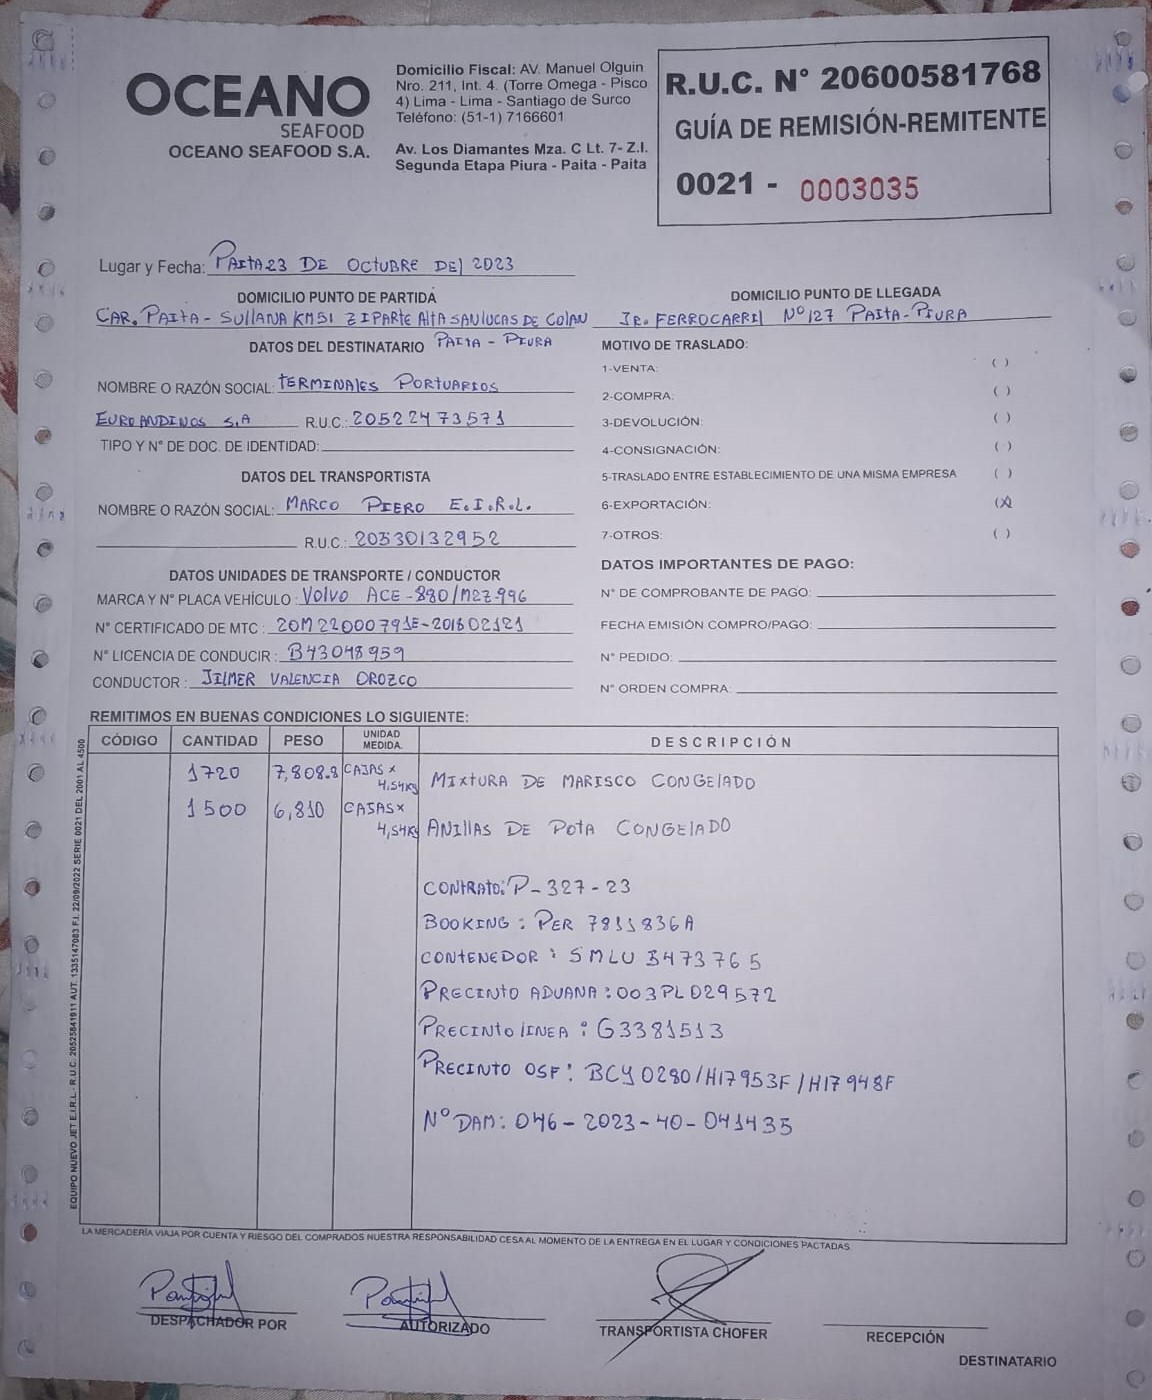 OCEANO
SEAFOOD
OCEANO SEAFOOD S.A.
Domicilio Fiscal: AV. Manuel Olguin
Nro. 211, Int. 4. (Torre Omega - Pisco
4) Lima - Lima - Santiago de Surco
Teléfono: (51-1) 7166601
Av. Los Diamantes Mza. C Lt. 7- Z.I.
Segunda Etapa Piura - Paita - Paita
R.U.C. N° 20600581768
GUÍA DE REMISIÓN-REMITENTE
0021 - 0003035
Lugar y Fecha: PAITA 23 DE OCTUBRE DEl 2023
DOMICILIO PUNTO DE PARTIDA
CAR. PAITA - SUllANA KM51 ZI PARTE AltA SAN LUCAS DE COlAN
PAITA - PIURA
DOMICILIO PUNTO DE LLEGADA
JR. FERROCARRIl N° 127 PAITA-PIURA
DATOS DEL DESTINATARIO
NOMBRE O RAZÓN SOCIAL: TERMINALES PORTUARIOS
EUROANDINOS S.A R.U.C.: 20522473571
TIPO Y N° DE DOC. DE IDENTIDAD:
DATOS DEL TRANSPORTISTA
NOMBRE O RAZÓN SOCIAL: MARCO PIERO E.I.R.L.
R.U.C.: 20530132952
DATOS UNIDADES DE TRANSPORTE / CONDUCTOR
MARCA Y N° PLACA VEHÍCULO: VOlVO ACE-880/M2Z-996
N° CERTIFICADO DE MTC: 20M22000791E-201802121
N° LICENCIA DE CONDUCIR: B43048959
CONDUCTOR: JIlMER VALENCIA OROZCO
MOTIVO DE TRASLADO:
1-VENTA: ( )
2-COMPRA: ( )
3-DEVOLUCIÓN: ( )
4-CONSIGNACIÓN: ( )
5-TRASLADO ENTRE ESTABLECIMIENTO DE UNA MISMA EMPRESA ( )
6-EXPORTACIÓN: (X)
7-OTROS: ( )
DATOS IMPORTANTES DE PAGO:
N° DE COMPROBANTE DE PAGO:
FECHA EMISIÓN COMPRO/PAGO:
N° PEDIDO:
N° ORDEN COMPRA:
REMITIMOS EN BUENAS CONDICIONES LO SIGUIENTE:
CÓDIGO CANTIDAD PESO UNIDAD MEDIDA. DESCRIPCIÓN
1720 7,808.8 CAJAS x 4,54Kg MIXTURA DE MARISCO CONGElADO
1500 6,810 CAJAS x 4,54Kg ANIllAS DE POTA CONGElADO
CONTRATO: P-327-23
BOOKING: PER 7811836A
CONTENEDOR: SMLU 5473765
PRECINTO ADUANA: 003PL029572
PRECINTO lINEA: G3381513
PRECINTO OSF: BCY0280/H17953F/H17948F
N° DAM: 046-2023-40-041435
EQUIPO NUEVO JET E.I.R.L - R.U.C. 20525841911 AUT. 1335147083 F.I. 22/09/2022 SERIE 0021 DEL 2001 AL 4500
LA MERCADERÍA VIAJA POR CUENTA Y RIESGO DEL COMPRADOS NUESTRA RESPONSABILIDAD CESA AL MOMENTO DE LA ENTREGA EN EL LUGAR Y CONDICIONES PACTADAS
DESPACHADOR POR
AUTORIZADO
TRANSPORTISTA CHOFER
RECEPCIÓN
DESTINATARIO